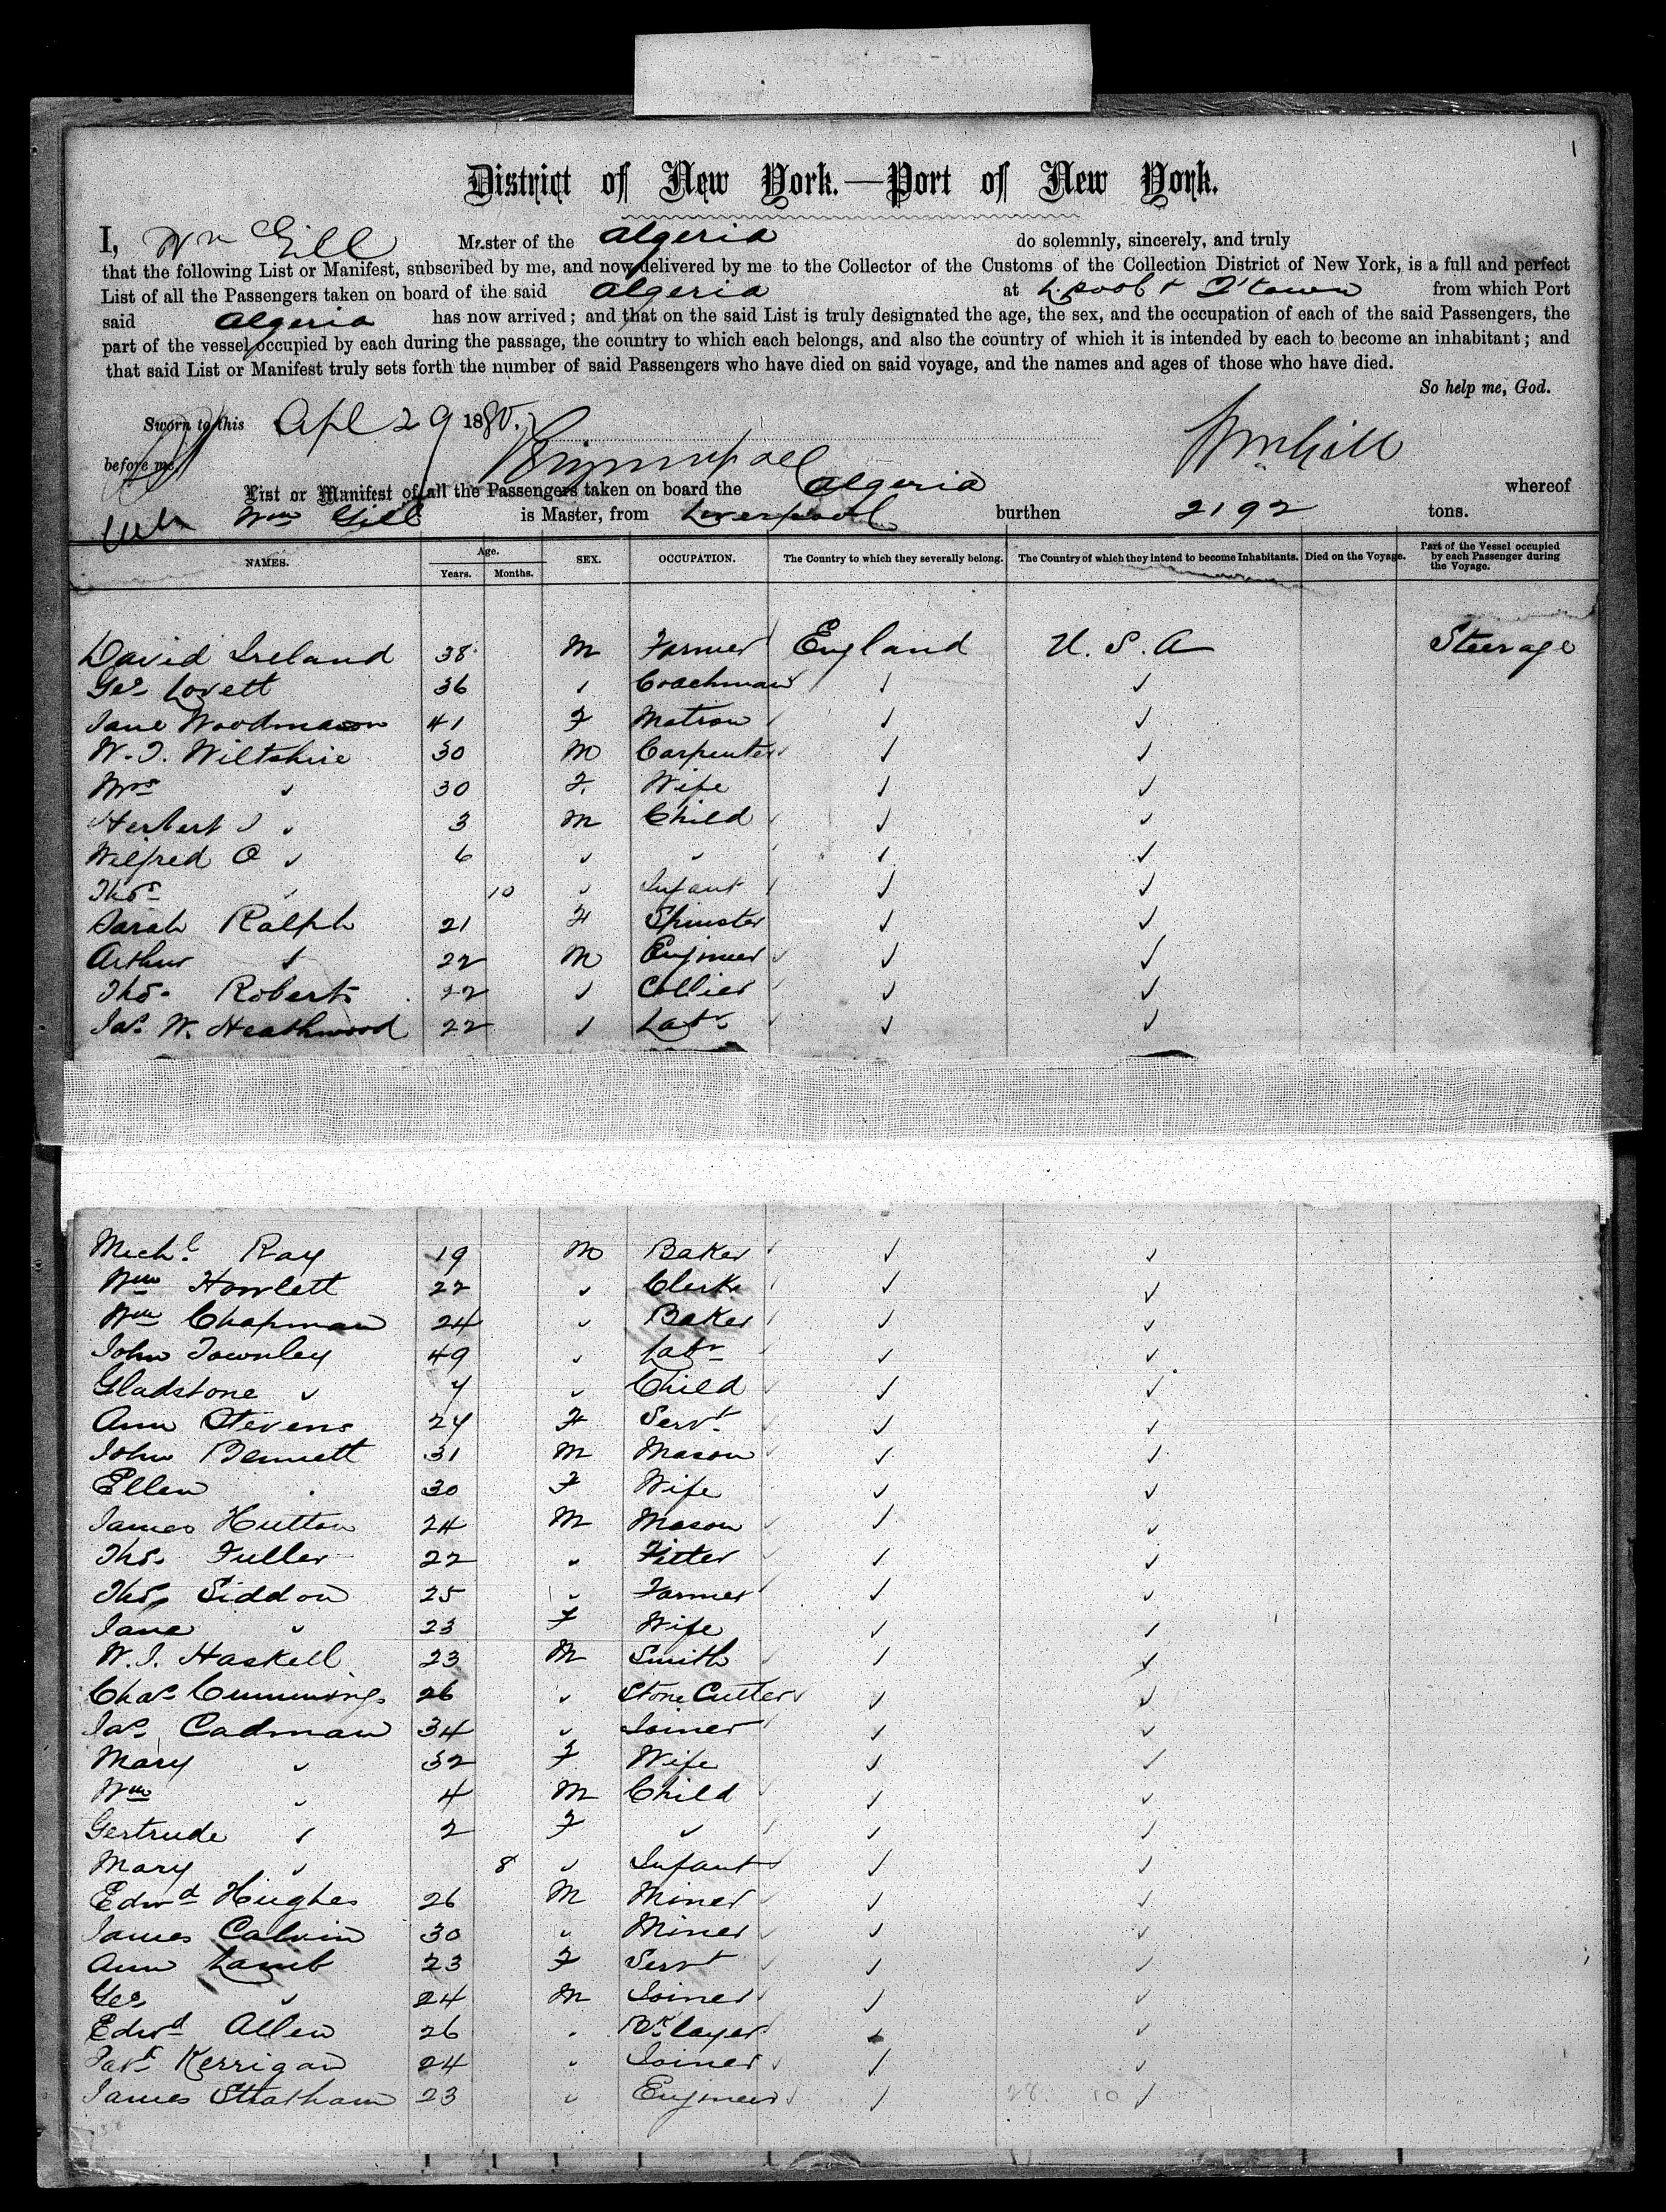 1
District of New York.—Port of New York.
I, Wm Gill Master of the Algeria do solemnly, sincerely, and truly
that the following List or Manifest, subscribed by me, and now delivered by me to the Collector of the Customs of the Collection District of New York, is a full and perfect
List of all the Passengers taken on board of the said Algeria at L.pool & Q'town from which Port
said Algeria has now arrived; and that on the said List is truly designated the age, the sex, and the occupation of each of the said Passengers, the
part of the vessel occupied by each during the passage, the country to which each belongs, and also the country of which it is intended by each to become an inhabitant; and
that said List or Manifest truly sets forth the number of said Passengers who have died on said voyage, and the names and ages of those who have died.
So help me, God.
Sworn to this Apl 29 1880. Wm Gill
before me
List or Manifest of all the Passengers taken on board the Algeria whereof
Wm Gill is Master, from Liverpool burthen 2192 tons.
NAMES. Age. Years. Months. SEX. OCCUPATION. The Country to which they severally belong. The Country of which they intend to become Inhabitants. Died on the Voyage. Part of the Vessel occupied by each Passenger during the Voyage.
David Ireland 38 M Farmer England U.S.A Steerage
Geo Lovett 36 ✓ Coachman ✓ ✓
Jane Woodmason 41 F Matron ✓ ✓
W. J. Wiltshire 30 M Carpenter ✓ ✓
Mrs ✓ 30 F. Wife ✓ ✓
Herbert J ✓ 3 M Child ✓ ✓
Wilfred O ✓ 6 ✓ ✓ ✓ ✓
Thos ✓ 10 ✓ Infant ✓ ✓
Sarah Ralph 21 F Spinster ✓ ✓
Arthur ✓ 22 M Engineer ✓ ✓
Thos. Roberts 22 ✓ Collier ✓ ✓
Jas. W. Heathwood 22 ✓ Labr ✓ ✓
Michl Ray 19 M Baker ✓ ✓
Wm Howlett 22 ✓ Clerk ✓ ✓
Wm Chapman 24 ✓ Baker ✓ ✓
John Townley 49 ✓ Labr ✓ ✓
Gladstone ✓ 7 ✓ Child ✓ ✓
Ann Stevens 24 F Servt ✓ ✓
John Bennett 31 M Mason ✓ ✓
Ellen 30 F Wife ✓ ✓
James Hutton 24 M Mason ✓ ✓
Thos. Fuller 22 ✓ Fitter ✓ ✓
Thos. Siddon 25 ✓ Farmer ✓ ✓
Jane ✓ 23 F Wife ✓ ✓
W. J. Haskell 23 M Smith ✓ ✓
Chas. Cummings 26 ✓ Stone Cutter ✓ ✓
Jas. Cadman 34 ✓ Joiner ✓ ✓
Mary ✓ 32 F. Wife ✓ ✓
Wm ✓ 4 M Child ✓ ✓
Gertrude ✓ 2 F ✓ ✓ ✓
Mary ✓ 8 ✓ Infant ✓ ✓
Edwd Hughes 26 M Miner ✓ ✓
James Calvin 30 ✓ Miner ✓ ✓
Ann Lamb 23 F Servt ✓ ✓
Geo ✓ 24 M Joiner ✓ ✓
Edwd Allen 26 Bk layer ✓ ✓
Patk Kerrigan 24 ✓ Joiner ✓ ✓
James Statham 23 ✓ Engineer ✓ 28. 10 ✓